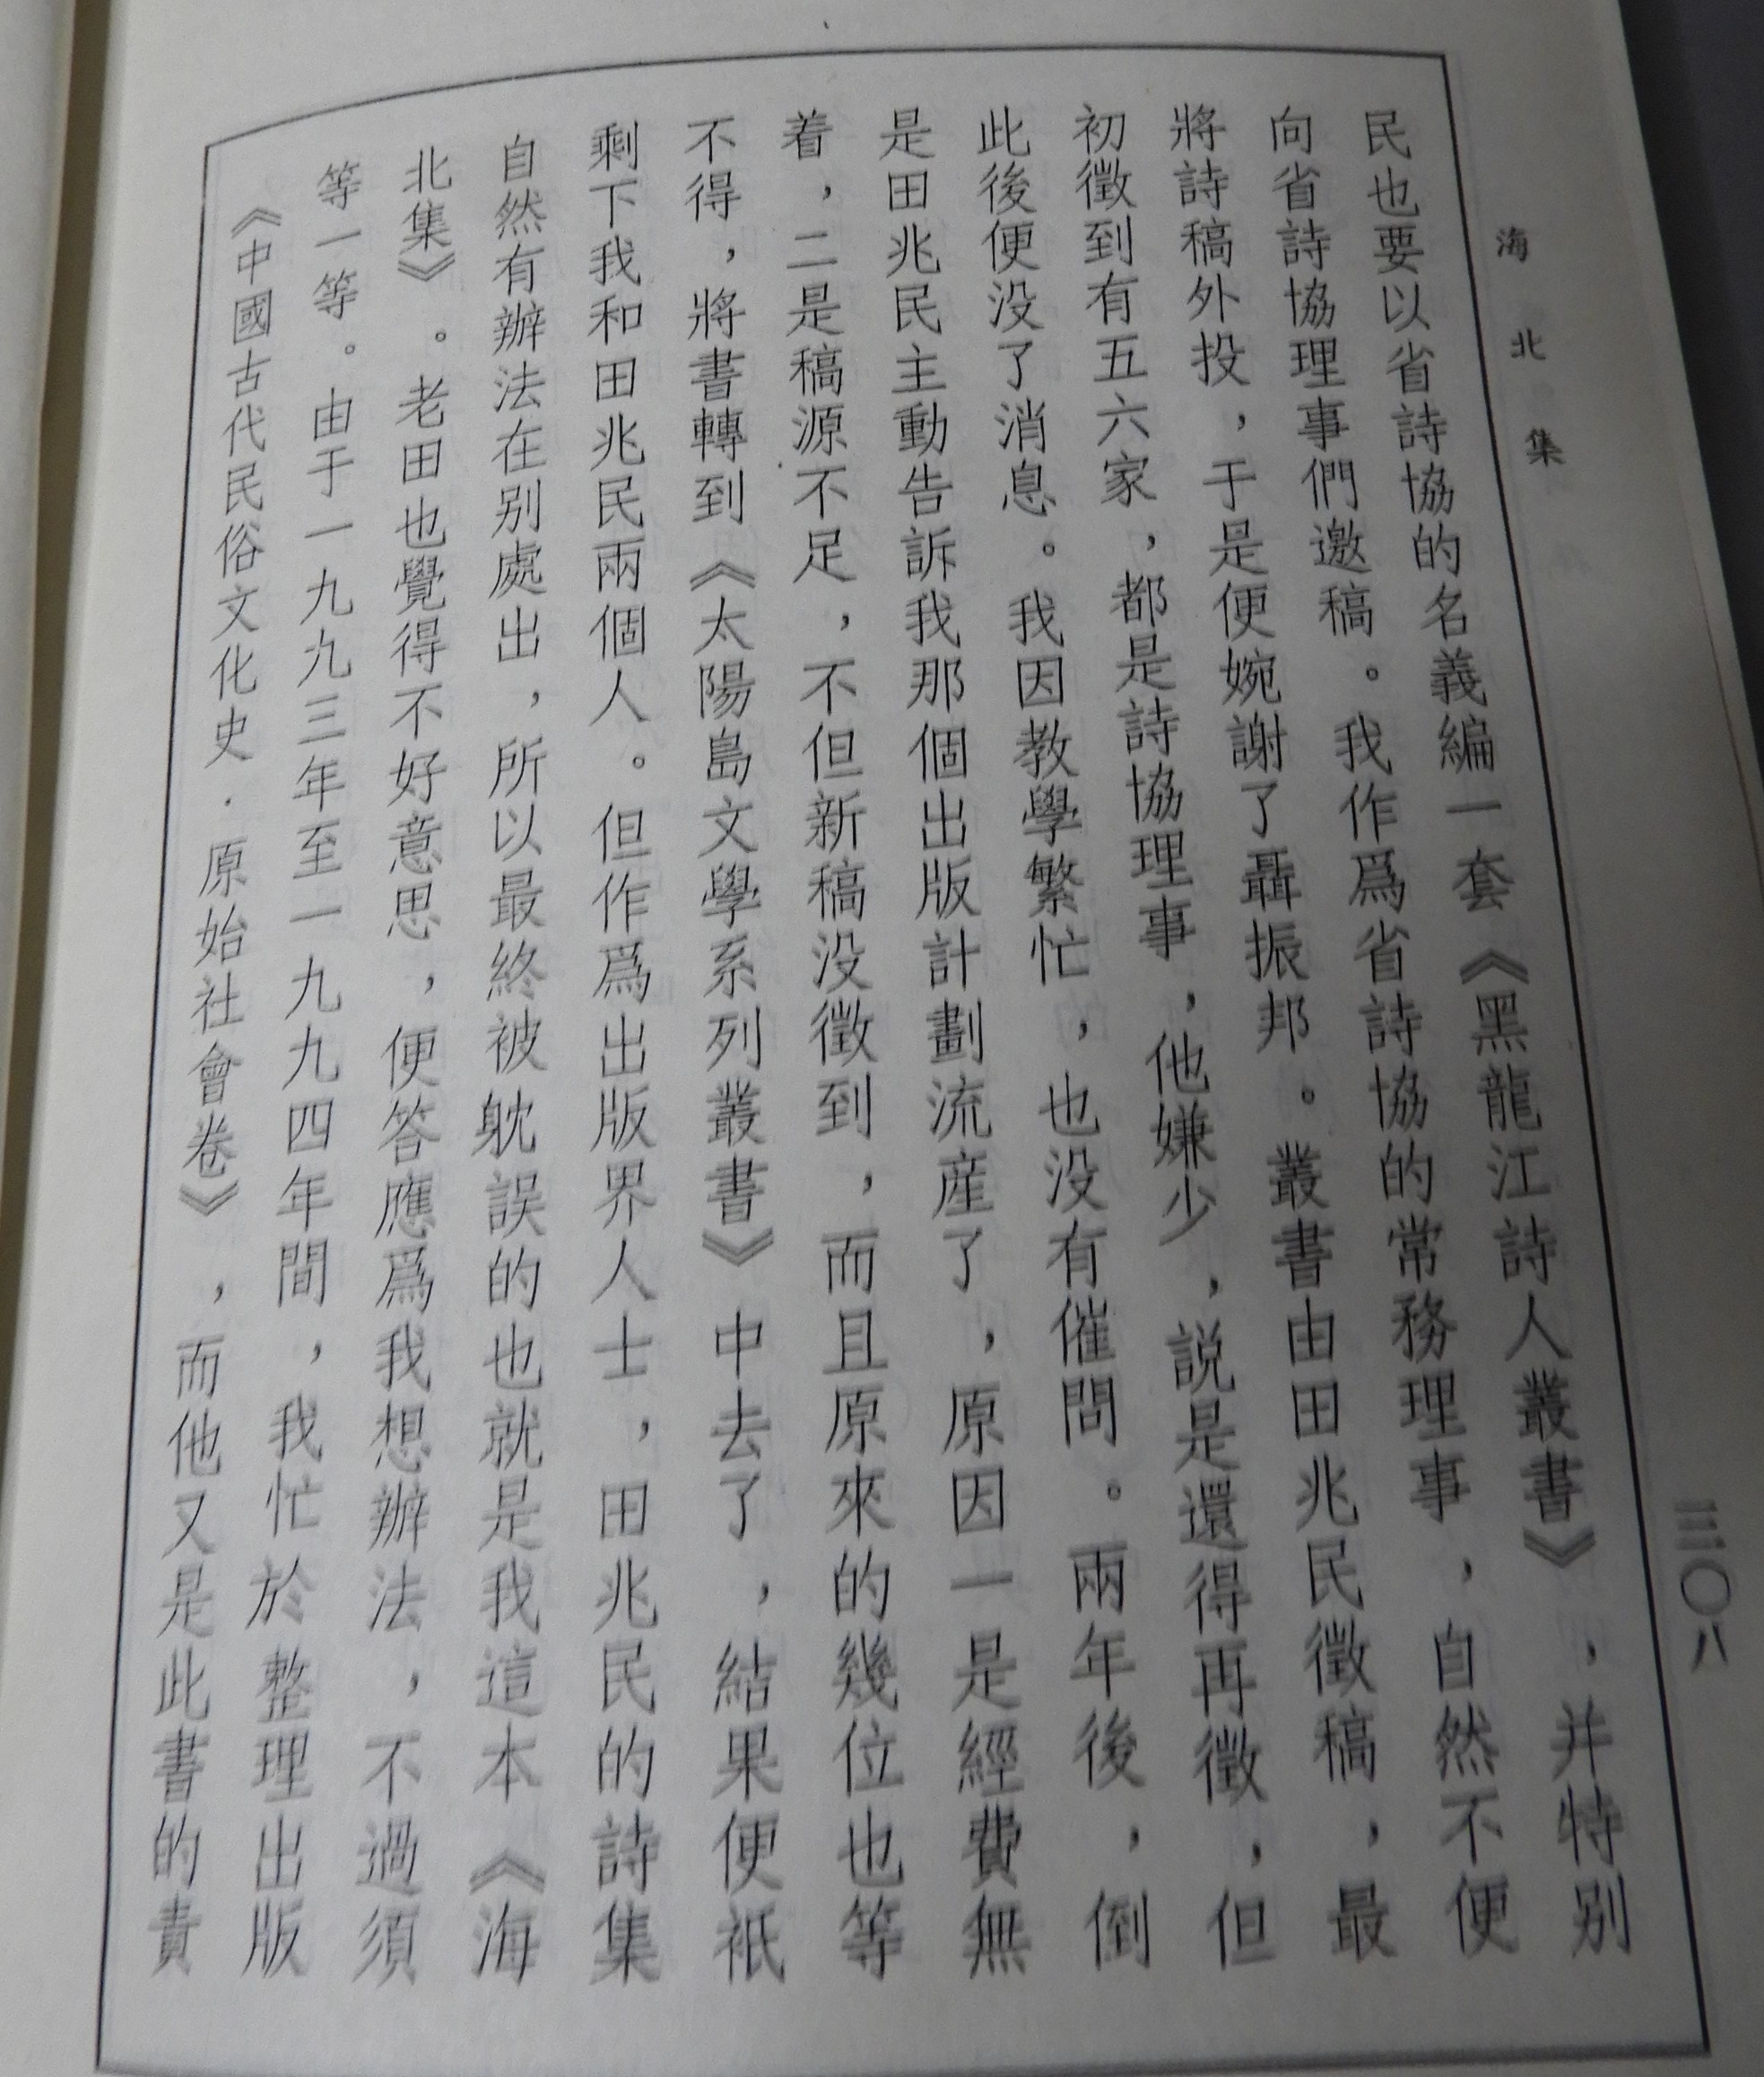 海北集
三〇八
民也要以省詩協的名義編一套《黑龍江詩人叢書》，并特别
向省詩協理事們邀稿。我作爲省詩協的常務理事，自然不便
將詩稿外投，于是便婉謝了聶振邦。叢書由田兆民徵稿，最
初徵到有五六家，都是詩協理事，他嫌少，説是還得再徵，但
此後便没了消息。我因教學繁忙，也没有催問。兩年後，倒
是田兆民主動告訴我那個出版計劃流産了，原因一是經費無
着，二是稿源不足，不但新稿没徵到，而且原來的幾位也等
不得，將書轉到《太陽島文學系列叢書》中去了，結果便祇
剩下我和田兆民兩個人。但作爲出版界人士，田兆民的詩集
自然有辦法在别處出，所以最終被躭誤的也就是我這本《海
北集》。老田也覺得不好意思，便答應爲我想辦法，不過須
等一等。由于一九九三年至一九九四年間，我忙於整理出版
《中國古代民俗文化史·原始社會卷》，而他又是此書的責